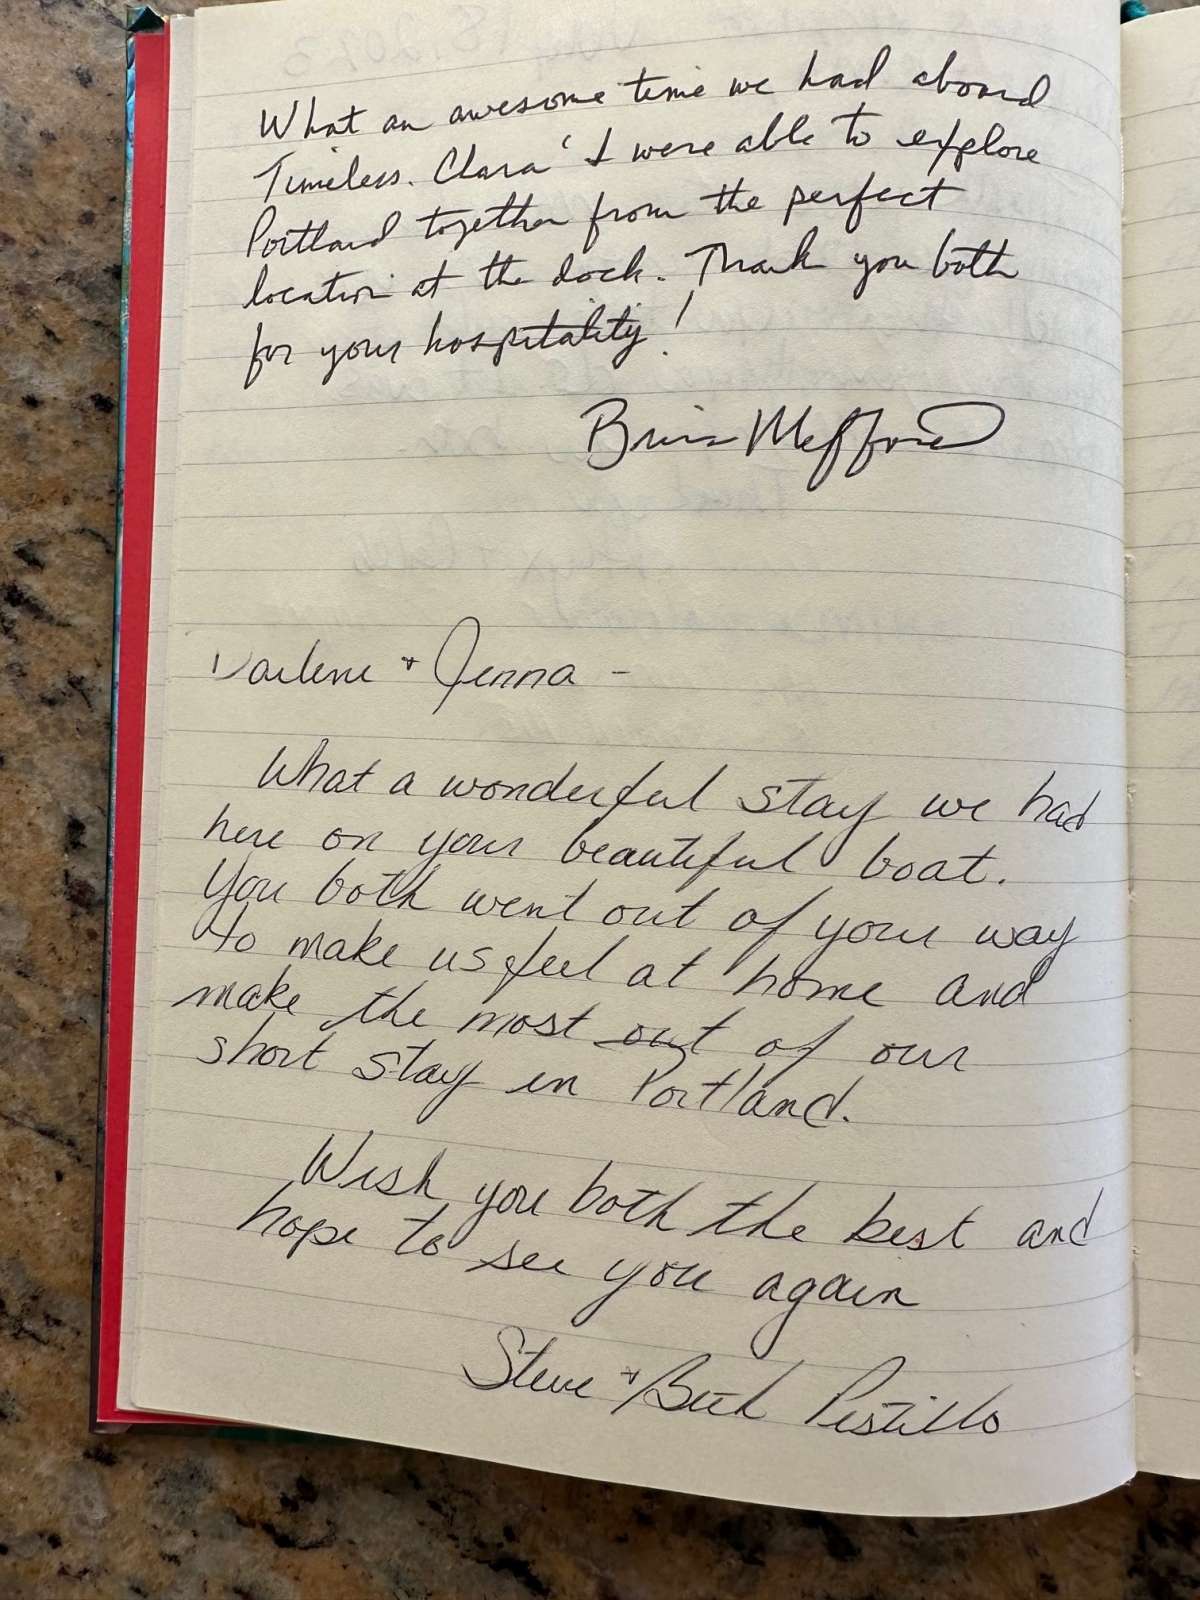 What an awesome time we had aboard
Timeless. Clara & I were able to explore
Portland together from the perfect
location at the dock. Thank you both
for your hospitality!
Brian Mefford
Darlene + Jenna -
What a wonderful stay we had
here on your beautiful boat.
You both went out of your way
to make us feel at home and
make the most out of our
short stay in Portland.
Wish you both the best and
hope to see you again
Steve + Beth Pistillo